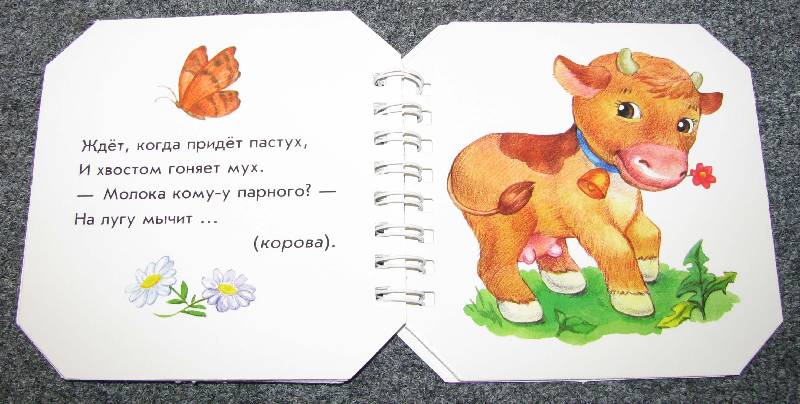 Ждёт, когда придёт пастух,
И хвостом гоняет мух.
— Молока кому-у парного? —
На лугу мычит ...
(корова).